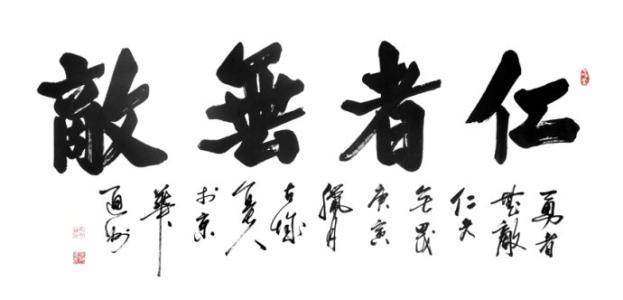 仁者無敵
勇者
無敵
仁
無畏
庚寅
臘月
古城
人
於京
華
通州